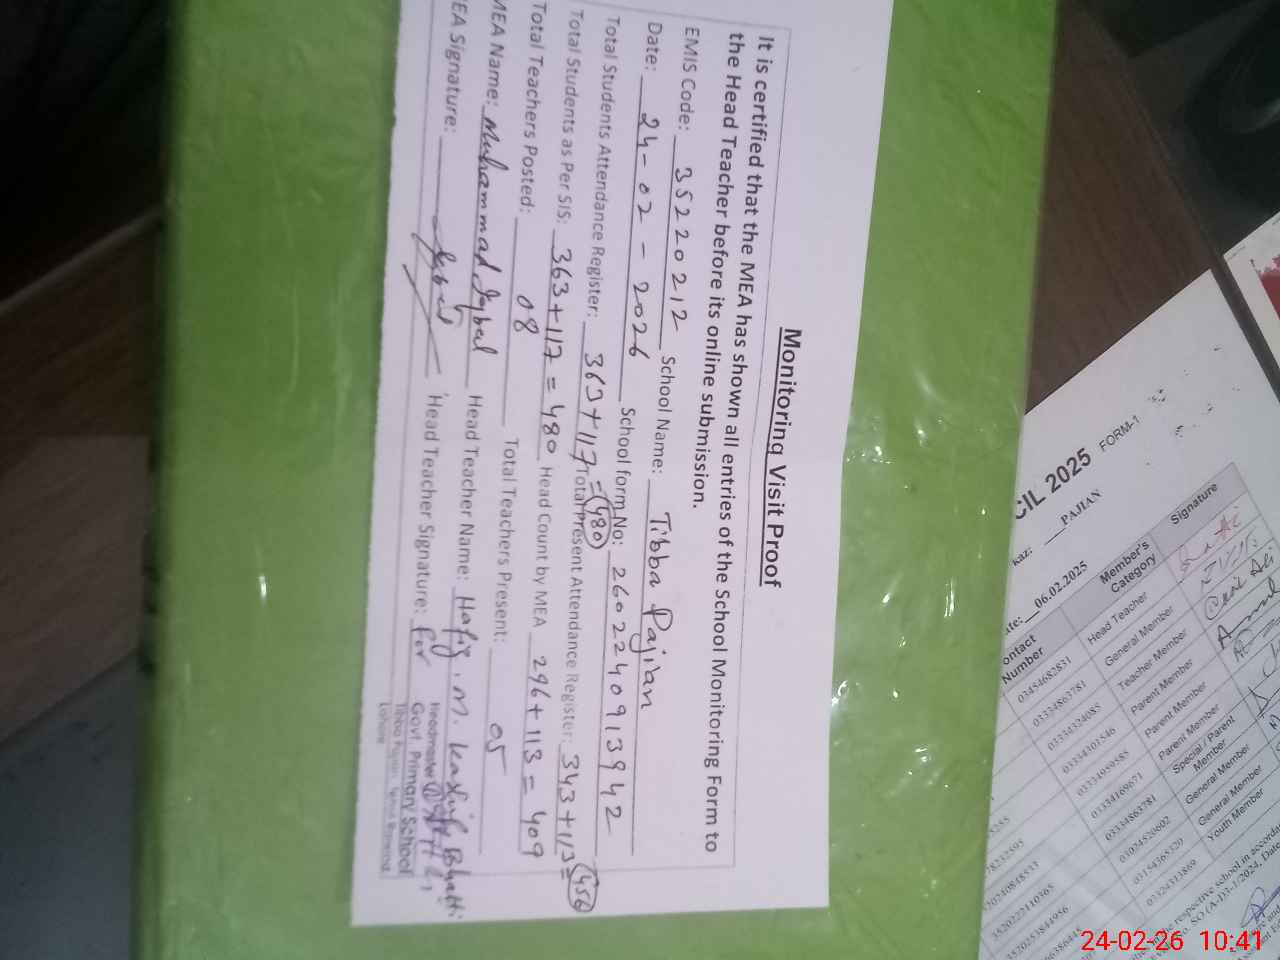 Monitoring Visit Proof
It is certified that the MEA has shown all entries of the School Monitoring Form to
the Head Teacher before its online submission.
EMIS Code: 35220212 School Name: Tibba Pajian
Date: 24-02-2026 School form No: 2602240913942
Total Students Attendance Register: 363+117=480 Total Present Attendance Register: 343+113=456
Total Students as Per SIS: 363+117=480 Head Count by MEA 296+113=409
Total Teachers Posted: 08 Total Teachers Present: 05
MEA Name: Muhammad Iqbal Head Teacher Name: Hafiz. M. Kashif Bhatti
EA Signature: Iqbal Head Teacher Signature: For
Headmaster
Govt. Primary School
Tibba Pajian
Lahore
CIL 2025 FORM-1
kaz: PAJIAN
ate: 06.02.2025
ontact Number Member's Category Signature
03454682831 Head Teacher
03334863781 General Member
03334324085 Teacher Member
03334301546 Parent Member
03334959585 Parent Member
03334169671 Parent Member
03334863781 Special / Parent Member
03024520602 General Member
03154365320 General Member
03224313869 Youth Member
he respective school in accord
No. SO (A-D3-1/2024, Date
24-02-26 10:41